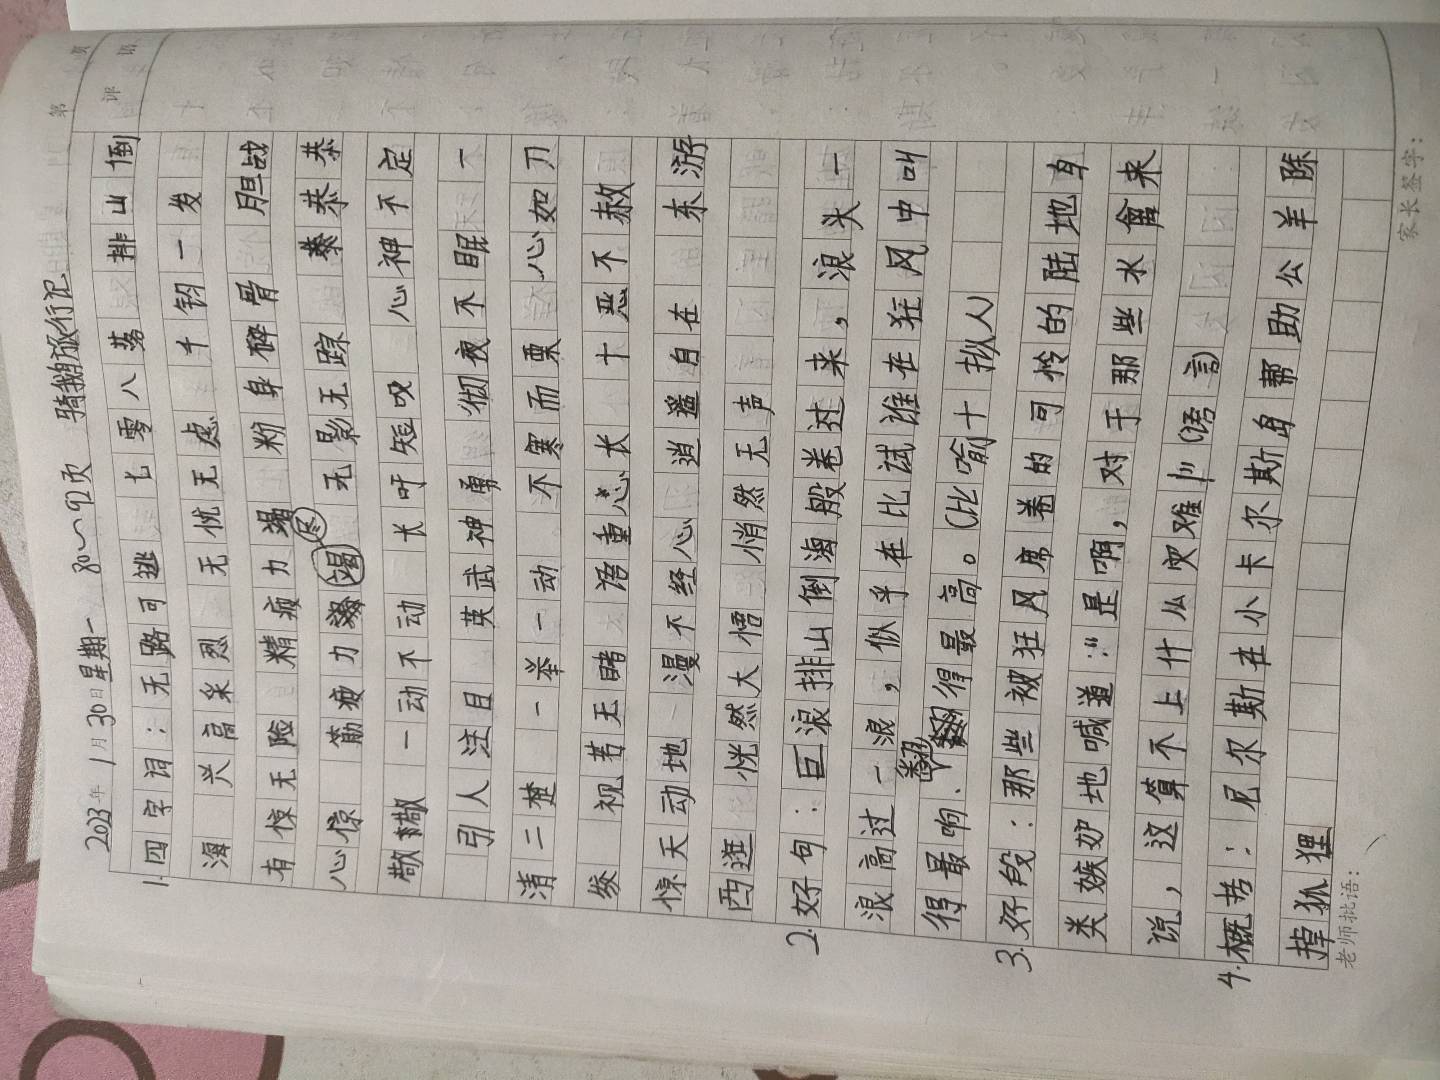 第 页
评 语
2023年1月30日星期一 80~92页 骑鹅旅行记
1.四字词：无路可逃 七零八落 排山倒
海 兴高采烈 无忧无虑 千钧一发
有惊无险 精疲力竭 粉身碎骨 胆战
心惊 筋疲力竭尽 无影无踪 恭恭
敬敬 一动不动 长吁短叹 心神不定
引人注目 英武神勇 彻夜不眠 一
清二楚 一举一动 不寒而栗 心如刀
绞 视若无睹 语重心长 十恶不赦
惊天动地 漫不经心 逍遥自在 东游
西逛 恍然大悟 悄然无声
2.好句：巨浪排山倒海般卷过来，浪头一
浪高过一浪，似乎在比试谁在狂风中叫
得最响、翻得最高。(比喻十拟人)
3.好段：那些被狂风席卷的可怜的陆地鸟
类嫉妒地喊道：“是啊，对于那些水禽来
说，这算不上什么灾难!”(语言)
4.概括：尼尔斯在小卡尔斯岛帮助公羊除
掉狐狸
老师批语：
家长签字：